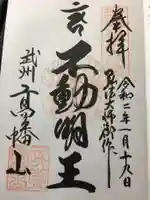 奉拝
令和二年一月十九日
弘法大師御作
不動明王
武州
高幡山